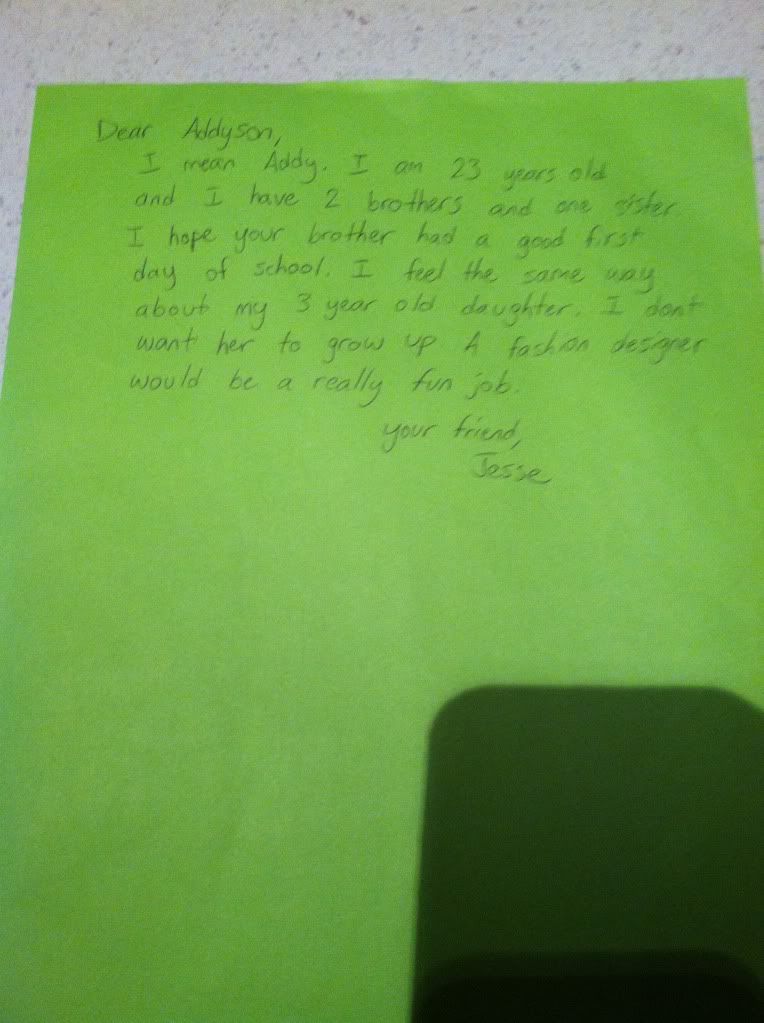 Dear Addyson,
I mean Addy. I am 23 years old
and I have 2 brothers and one sister
I hope your brother had a good first
day of school. I feel the same way
about my 3 year old daughter. I dont
want her to grow up A fashion designer
would be a really fun job.
your friend,
Jesse